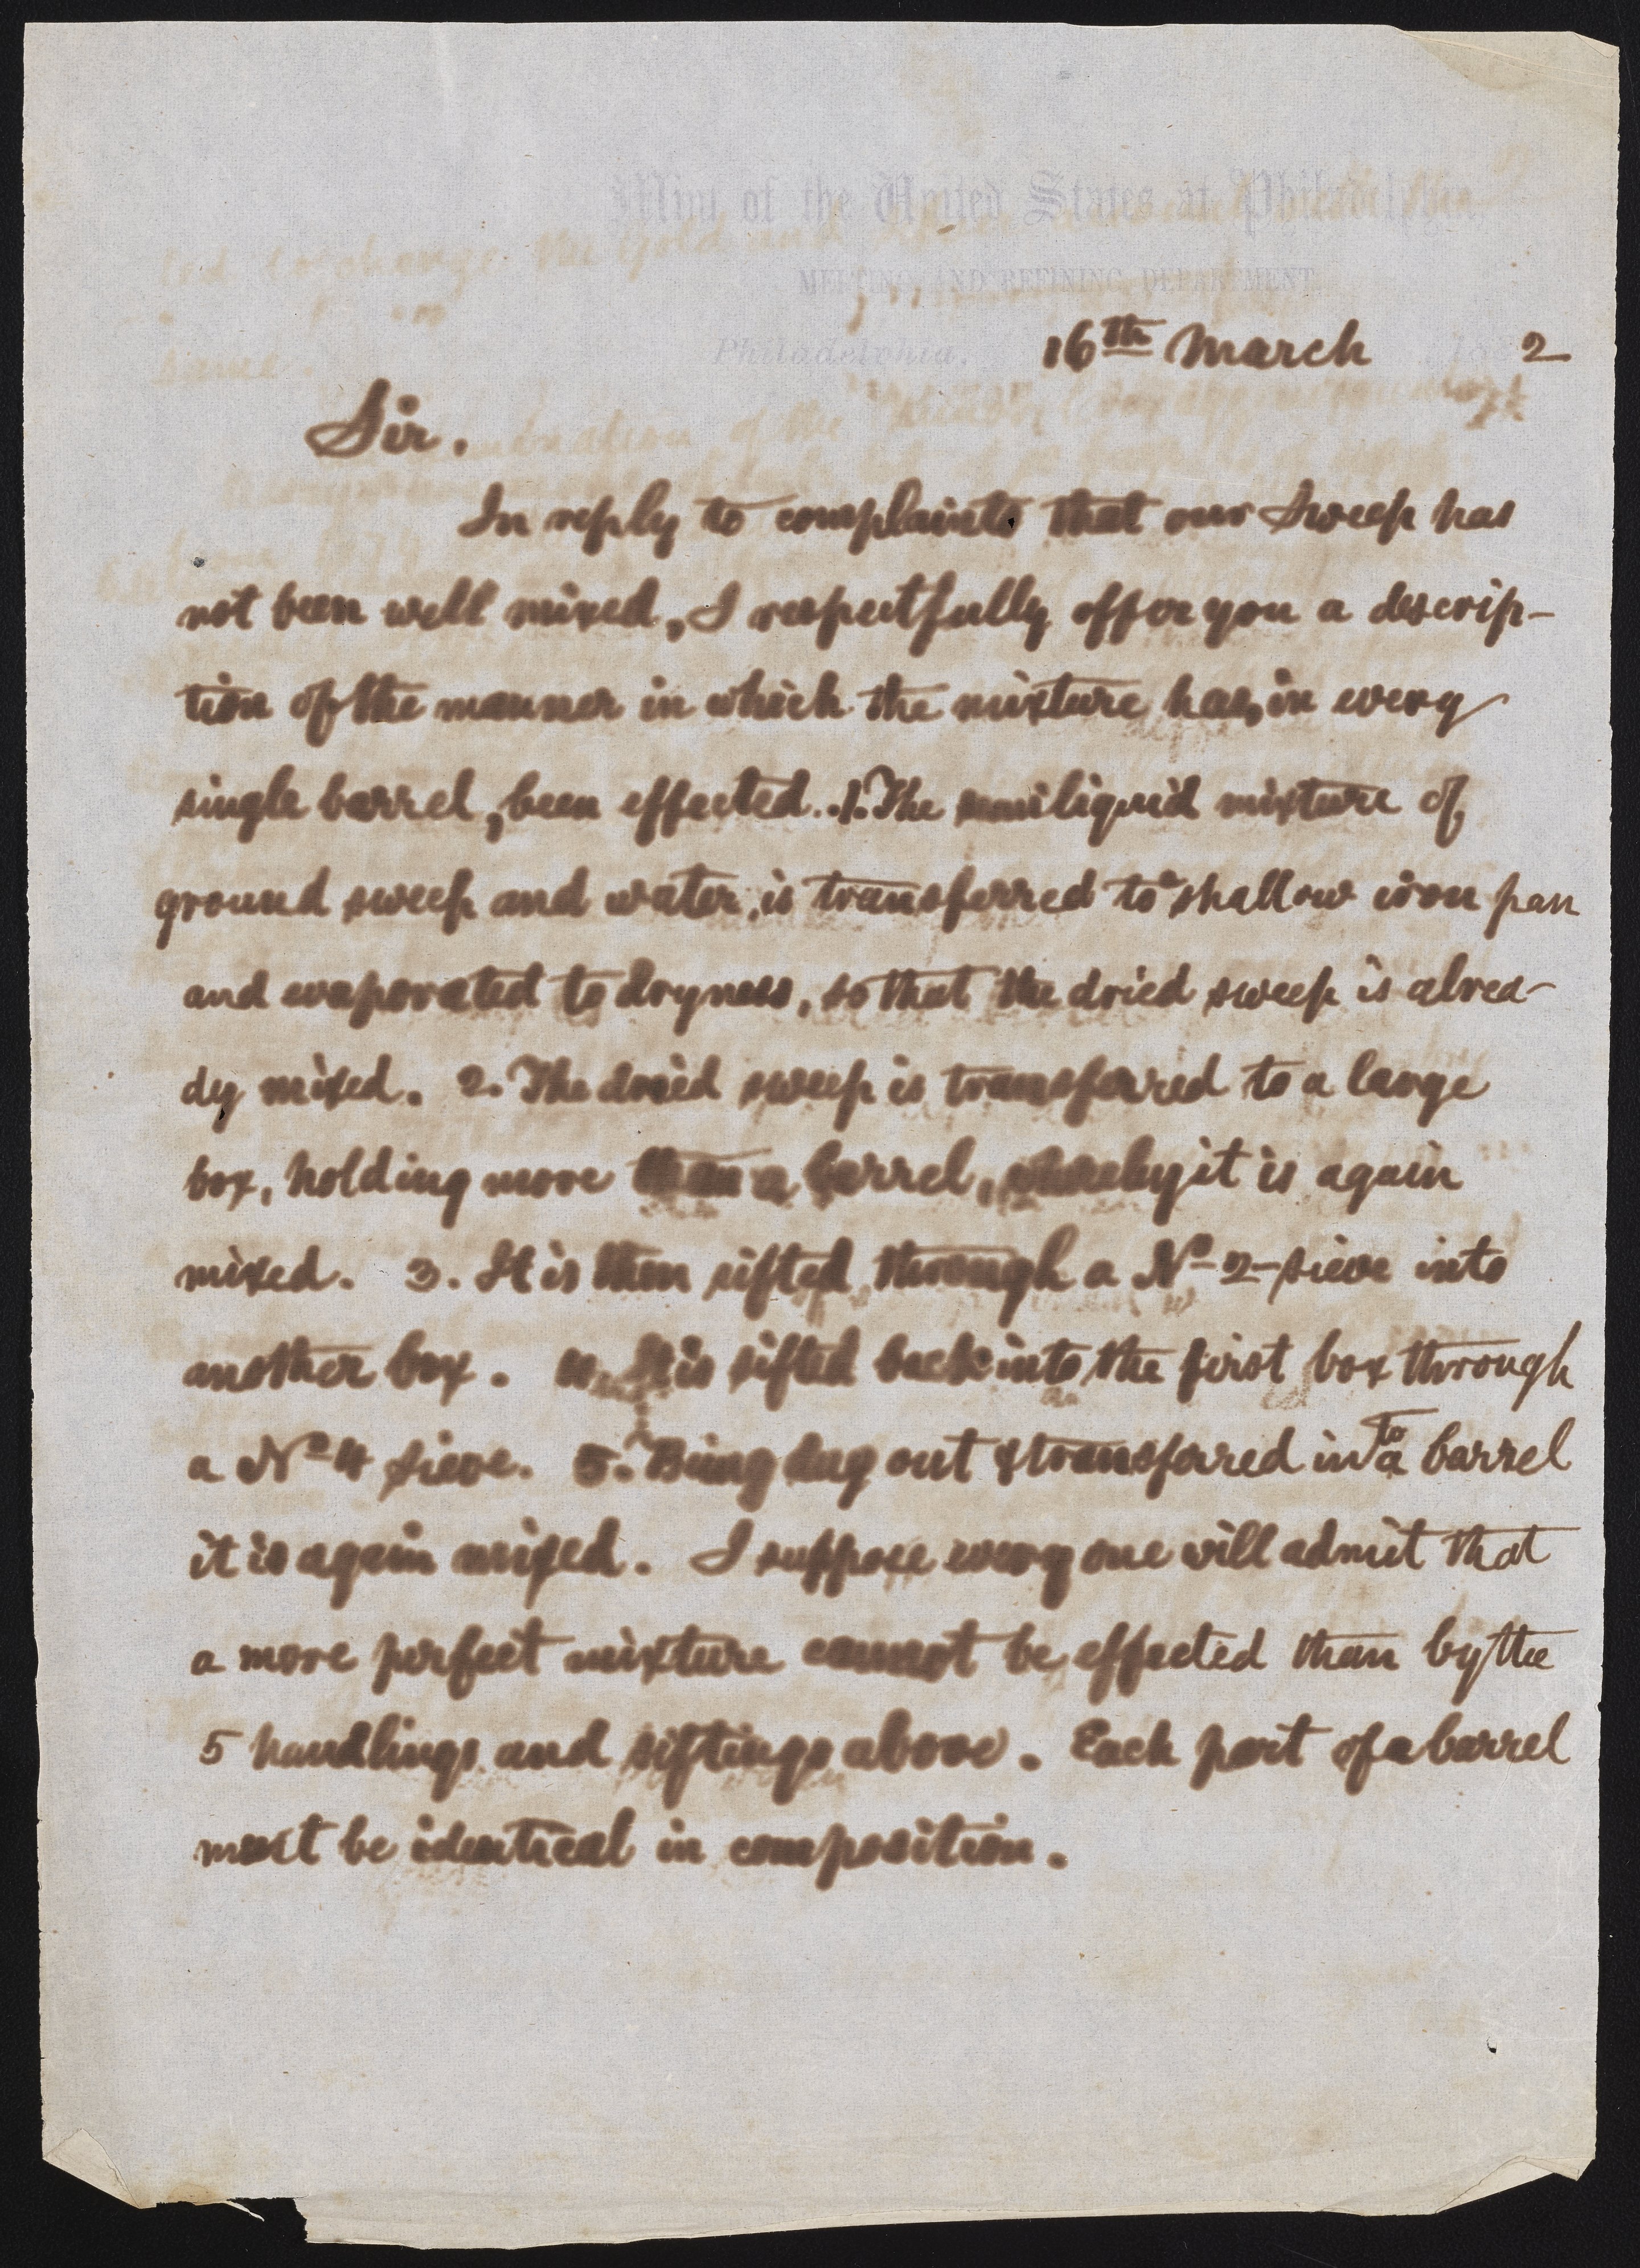 Mint of the United States at Philadelphia.
MELTING AND REFINING DEPARTMENT.
Philadelphia, 16th March 2
Sir.
In reply to complaints that our Sweep has
not been well mixed, I respectfully offer you a descrip-
tion of the manner in which the mixture has, in every
single barrel, been effected. 1. The semiliquid mixture of
ground sweep and water, is transferred to a shallow iron pan
and evaporated to dryness, so that the dried sweep is alrea-
dy mixed. 2. The dried sweep is transferred to a large
box, holding more than a barrel, whereby it is again
mixed. 3. It is then sifted through a No 2 sieve into
another box. 4. It is sifted back into the first box through
a No 4 sieve. 5. Being dug out & transferred into a barrel
it is again mixed. I suppose every one will admit that
a more perfect mixture cannot be effected than by the
5 handlings and siftings above. Each part of a barrel
must be identical in composition.